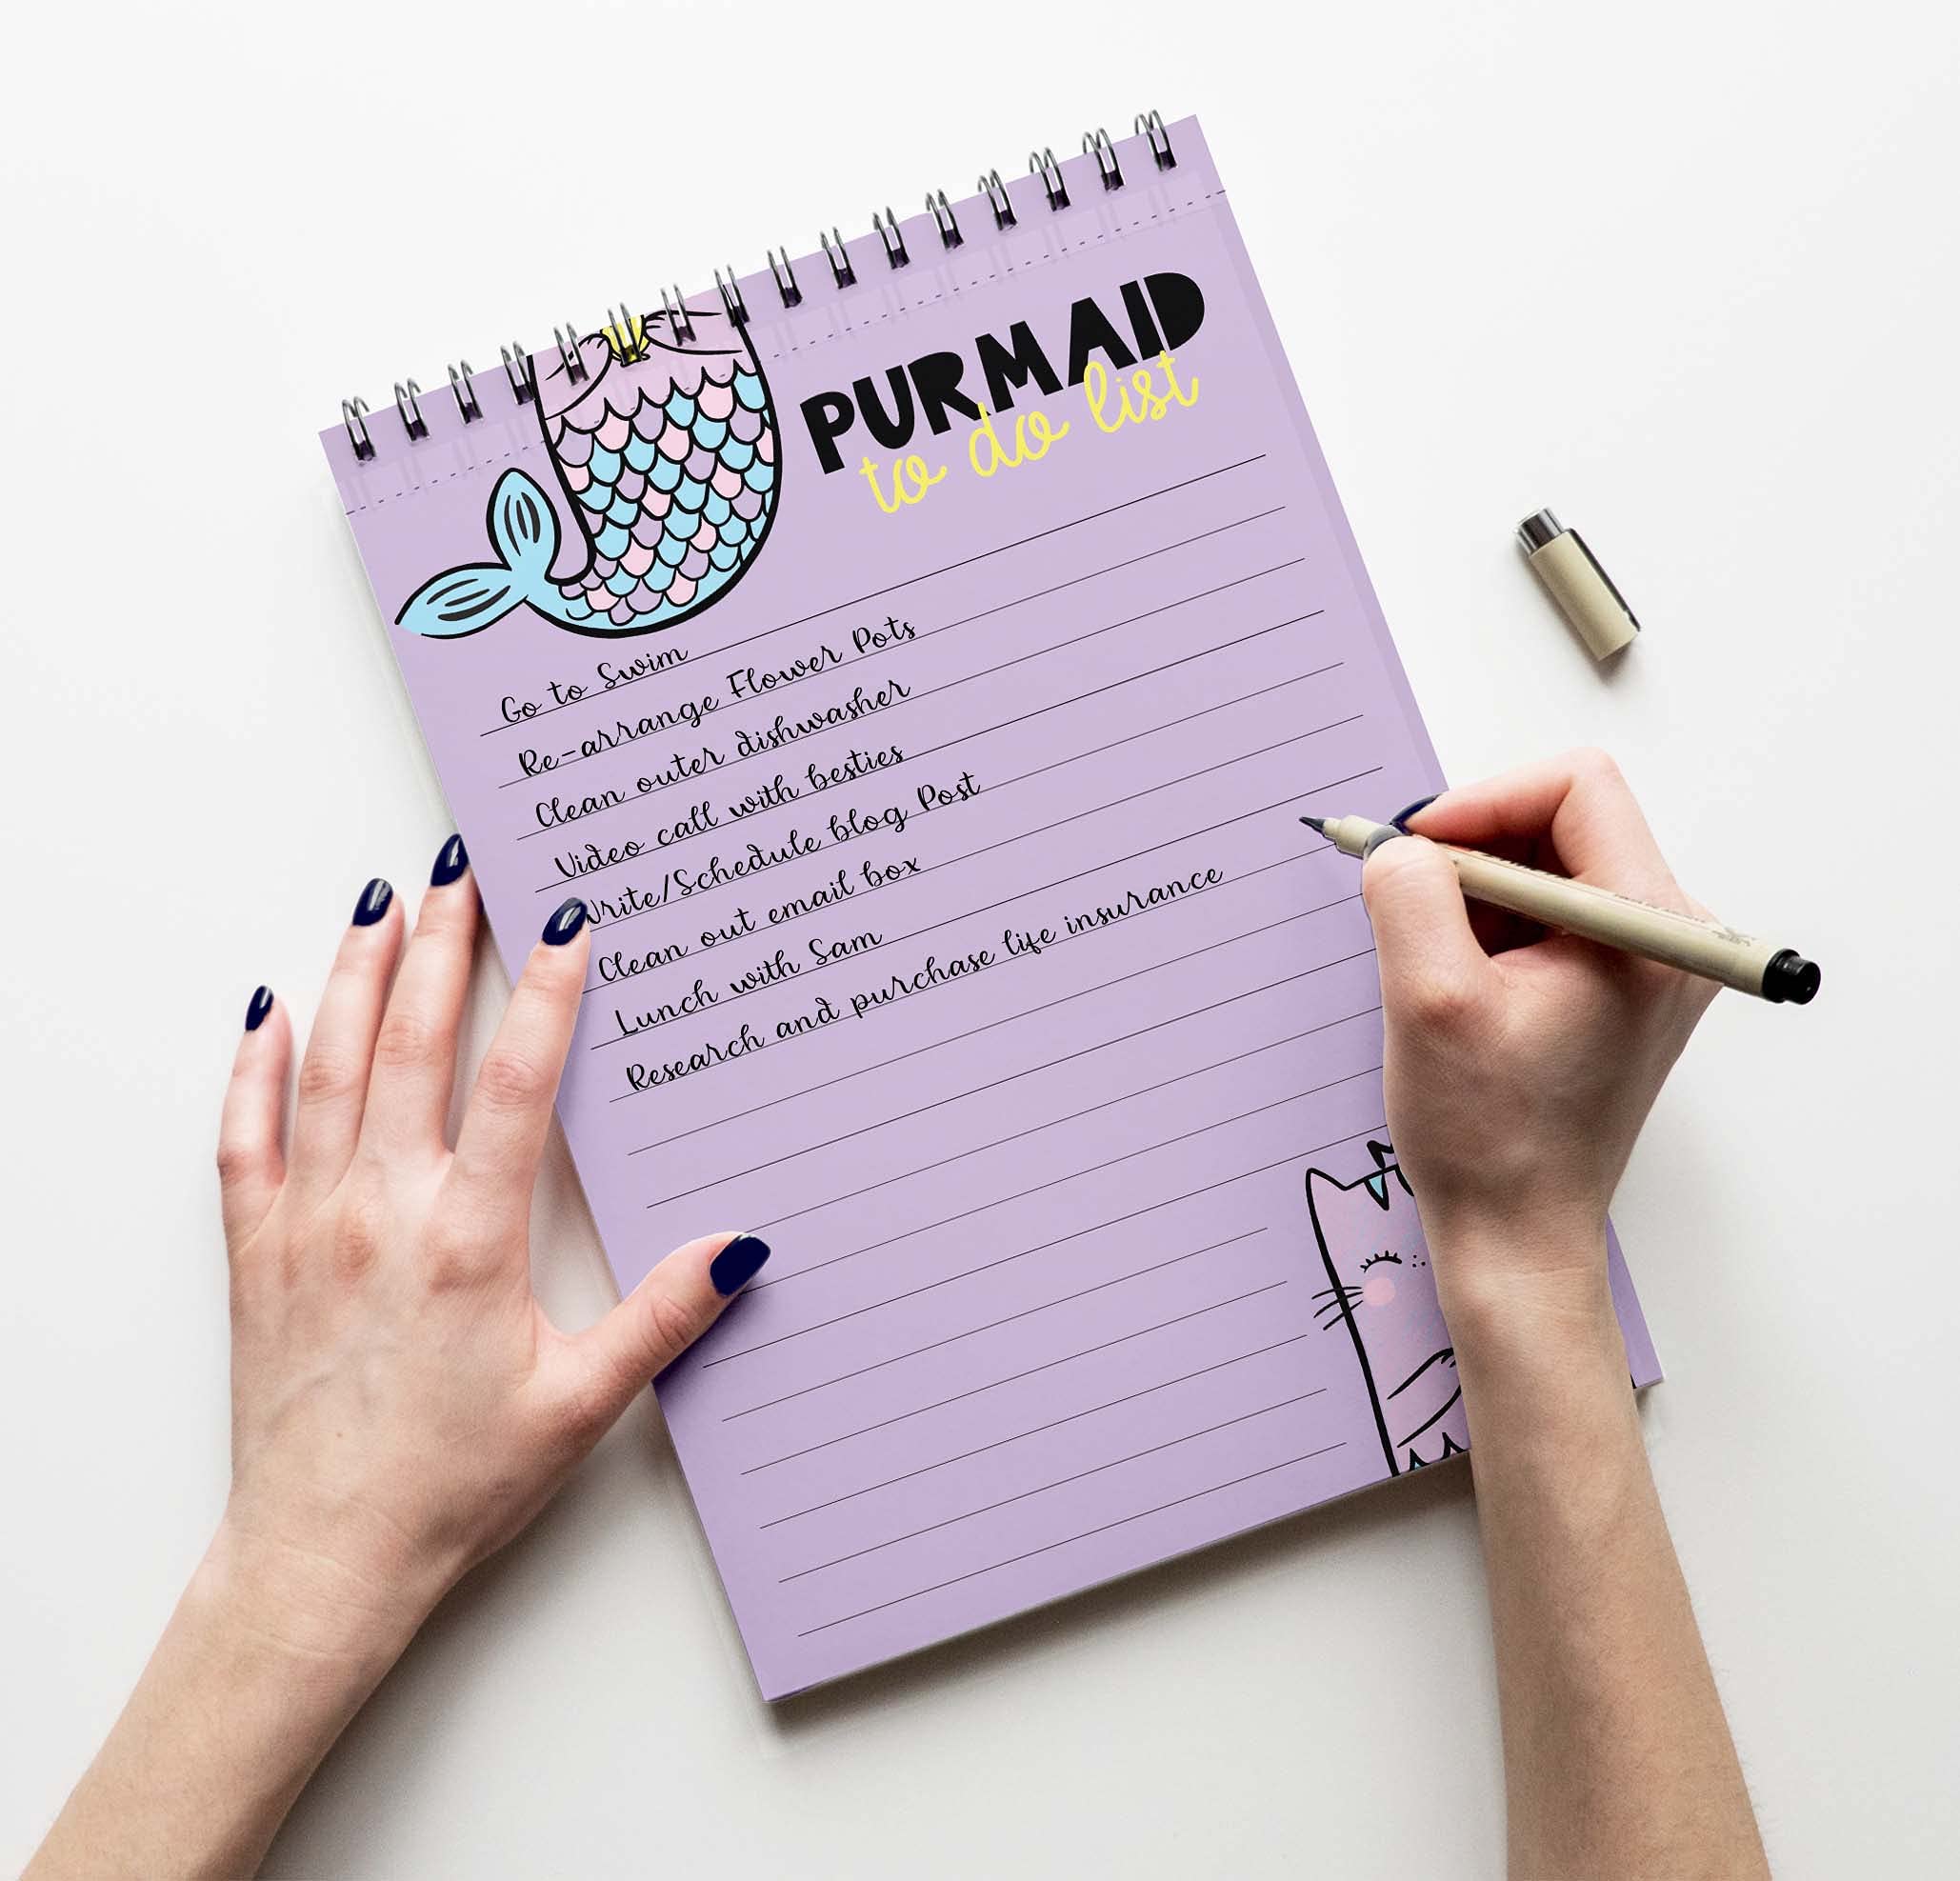 PURMAID
to do list
Go to Swim
Re-arrange Flower Pots
Clean outer dishwasher
Video call with besties
Write/Schedule blog Post
Clean out email box
Lunch with Sam
Research and purchase life insurance